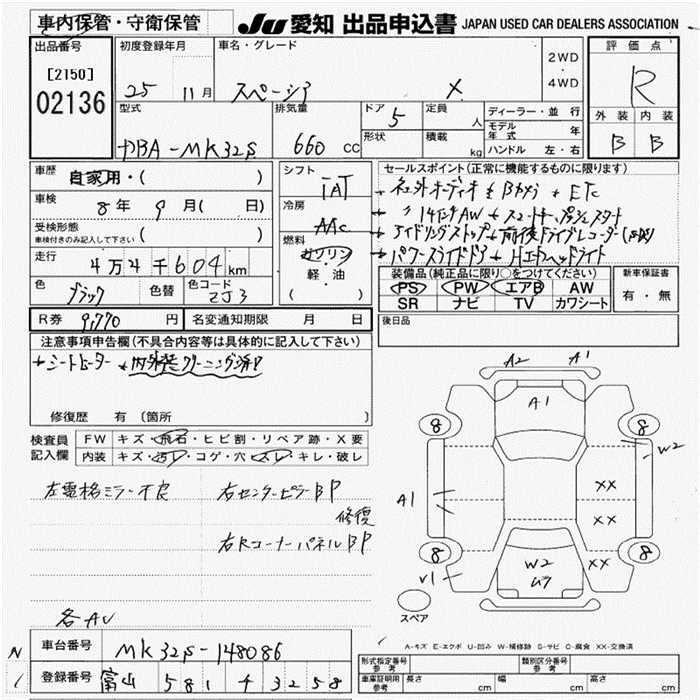 車内保管・守衛保管
JU 愛知 出品申込書 JAPAN USED CAR DEALERS ASSOCIATION
出品番号
[2150]
02136
初度登録年月
25 11月
車名・グレード
スペーシア X
2WD
・
4WD
評価点
R
外装 内装
B B
型式
DBA-MK32S
排気量
660 cc
ドア
5
形状
定員
人
積載
kg
ディーラー・並行
モデル年式 年
ハンドル 左・右
車歴
自家用・( )
車検
8年 9月( 日)
受検形態
車検付きのみ記入して下さい ( )
走行
4万2千604km
色
ブラック
色替
色コード
ZJ3
シフト
IAT
冷房
AAC
燃料
ガソリン
軽・油
( )
セールスポイント(正常に機能するものに限ります)
ETC
14インチAW
アイドリングストップ 前後ドライブレコーダー
パワースライドドア
装備品(純正品に限り○をつけてください)
PS PW エアB AW
SR ナビ TV カワシート
新車保証書
有・無
R券 9,770 円 名変通知期限 月 日
後日品
注意事項申告欄(不具合内容等は具体的に記入して下さい)
シートヒーター 内外装クリーニング済み
修復歴 有 (箇所 )
検査員
記入欄
FW キズ・飛石・ヒビ割・リペア跡・X要
内装 キズ・汚レ・コゲ・穴・スレ・キレ・破レ
左電格ミラー不良
右センターピラーBP
修復
右Rコーナーパネル BP
各AU
A2 A1
A1
8 8
W2
A1
XX
XX
8 8
W2
XX
V1
スペア
A-キズ E-エクボ U-凹み W-補修跡 S-サビ C-腐食 XX-交換済
N
1
車台番号 MK32S-148086
登録番号 富山 581 チ 3258
型式指定番号
参考
類別区分番号
参考
車庫証明用
参考
長さ cm 幅 cm 高さ cm